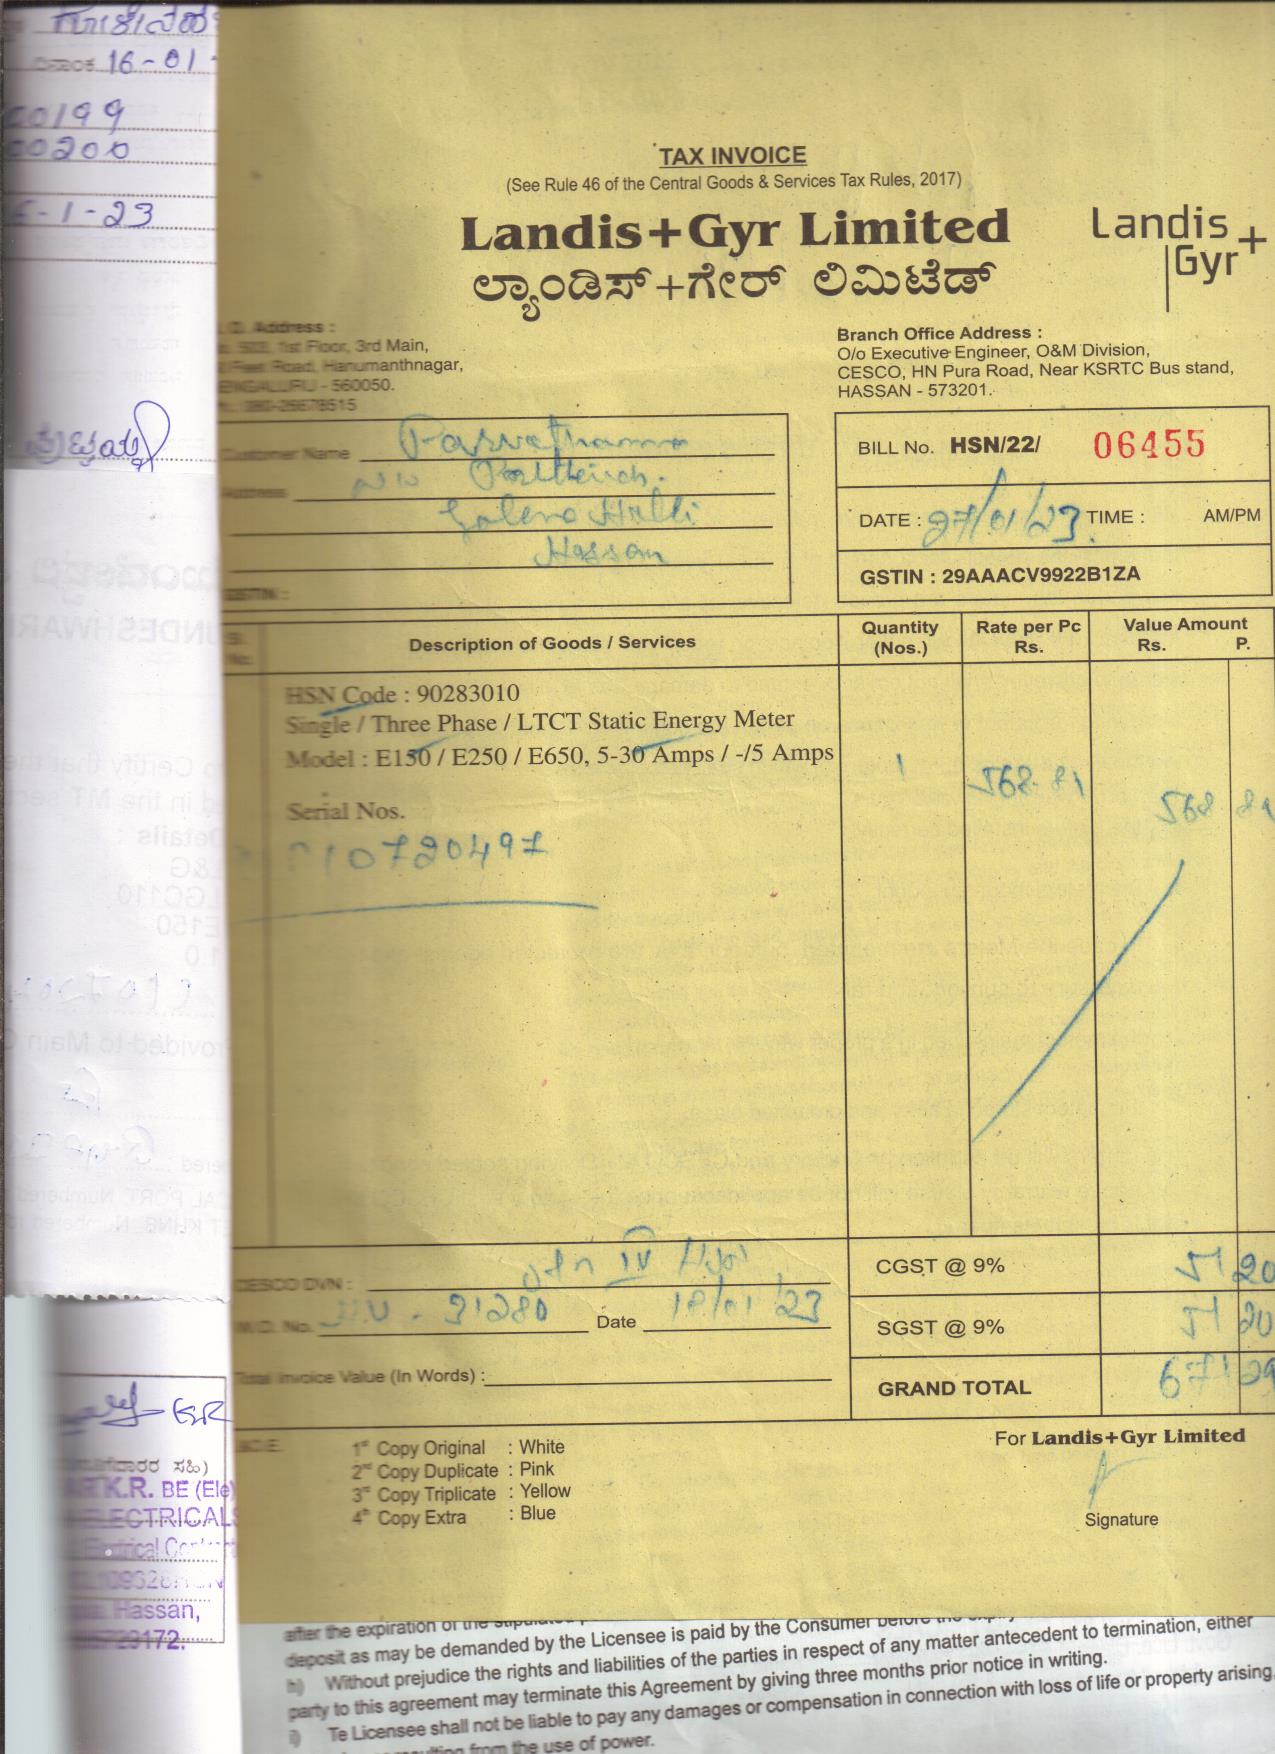 16-01
00199
00200
-1-23
TAX INVOICE
(See Rule 46 of the Central Goods & Services Tax Rules, 2017)
Landis+Gyr Limited
ಲ್ಯಾಂಡಿಸ್+ಗೇರ್ ಲಿಮಿಟೆಡ್
Landis
Gyr+
Address :
1st Floor, 3rd Main,
Feet Road, Hanumanthnagar,
BENGALURU - 560050.
Branch Office Address :
O/o Executive Engineer, O&M Division,
CESCO, HN Pura Road, Near KSRTC Bus stand,
HASSAN - 573201.
Customer Name Parvathamma
Address
Hassan
GSTIN :
BILL No. HSN/22/ 06455
DATE : 27/01/23 TIME : AM/PM
GSTIN : 29AAACV9922B1ZA
Sl. No. Description of Goods / Services Quantity (Nos.) Rate per Pc Rs. Value Amount Rs. P.
HSN Code : 90283010
Single / Three Phase / LTCT Static Energy Meter
Model : E150 / E250 / E650, 5-30 Amps / -/5 Amps
1 568-81 568 81
Serial Nos.
10720497
CESCO DVN :
CGST @ 9% 51 20
31280 Date 18/01/23
SGST @ 9% 51 20
Total Invoice Value (In Words) :
GRAND TOTAL 671 29
1st Copy Original : White
2nd Copy Duplicate : Pink
3rd Copy Triplicate : Yellow
4th Copy Extra : Blue
For Landis+Gyr Limited
Signature
ಸಹಿ)
K.R. BE (Ele)
ELECTRICALS
Hassan,
after the expiration of the
deposit as may be demanded by the Licensee is paid by the Consumer before the
h) Without prejudice the rights and liabilities of the parties in respect of any matter antecedent to termination, either
party to this agreement may terminate this Agreement by giving three months prior notice in writing.
i) Te Licensee shall not be liable to pay any damages or compensation in connection with loss of life or property arising
from the use of power.